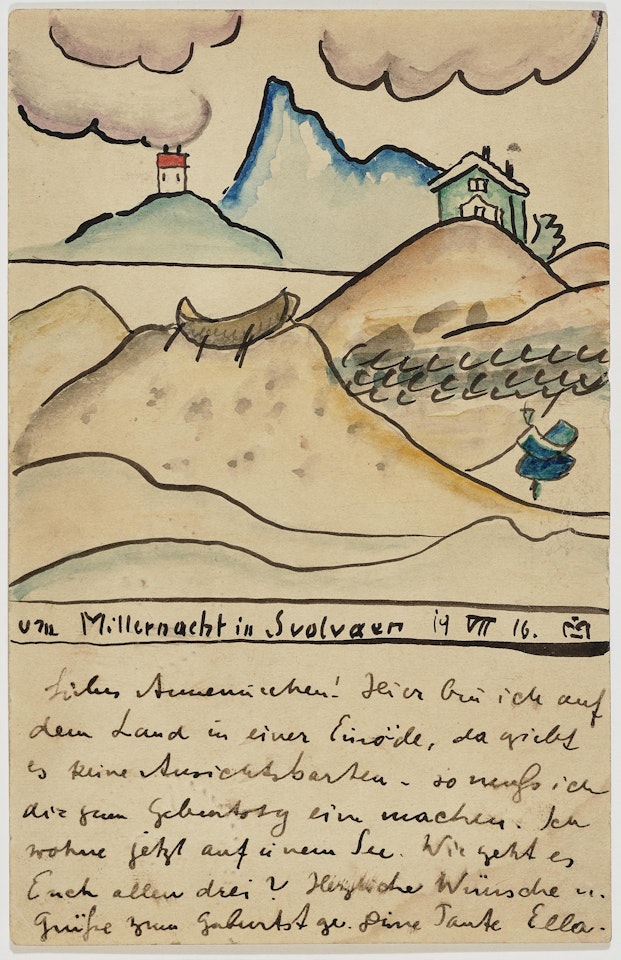 um Mitternacht in Svolvaer 14 VII 16.
Liebes Annemiechen! Hier bin ich auf
dem Land in einer Einöde, da giebt
es keine Ansichtskarten - so muß ich
dir zum Geburtstg eine machen. Ich
wohne jetzt auf einem See. Wie geht es
Euch allen drei? Herzliche Wünsche u.
Grüße zum Geburtstge. Deine Tante Ella.